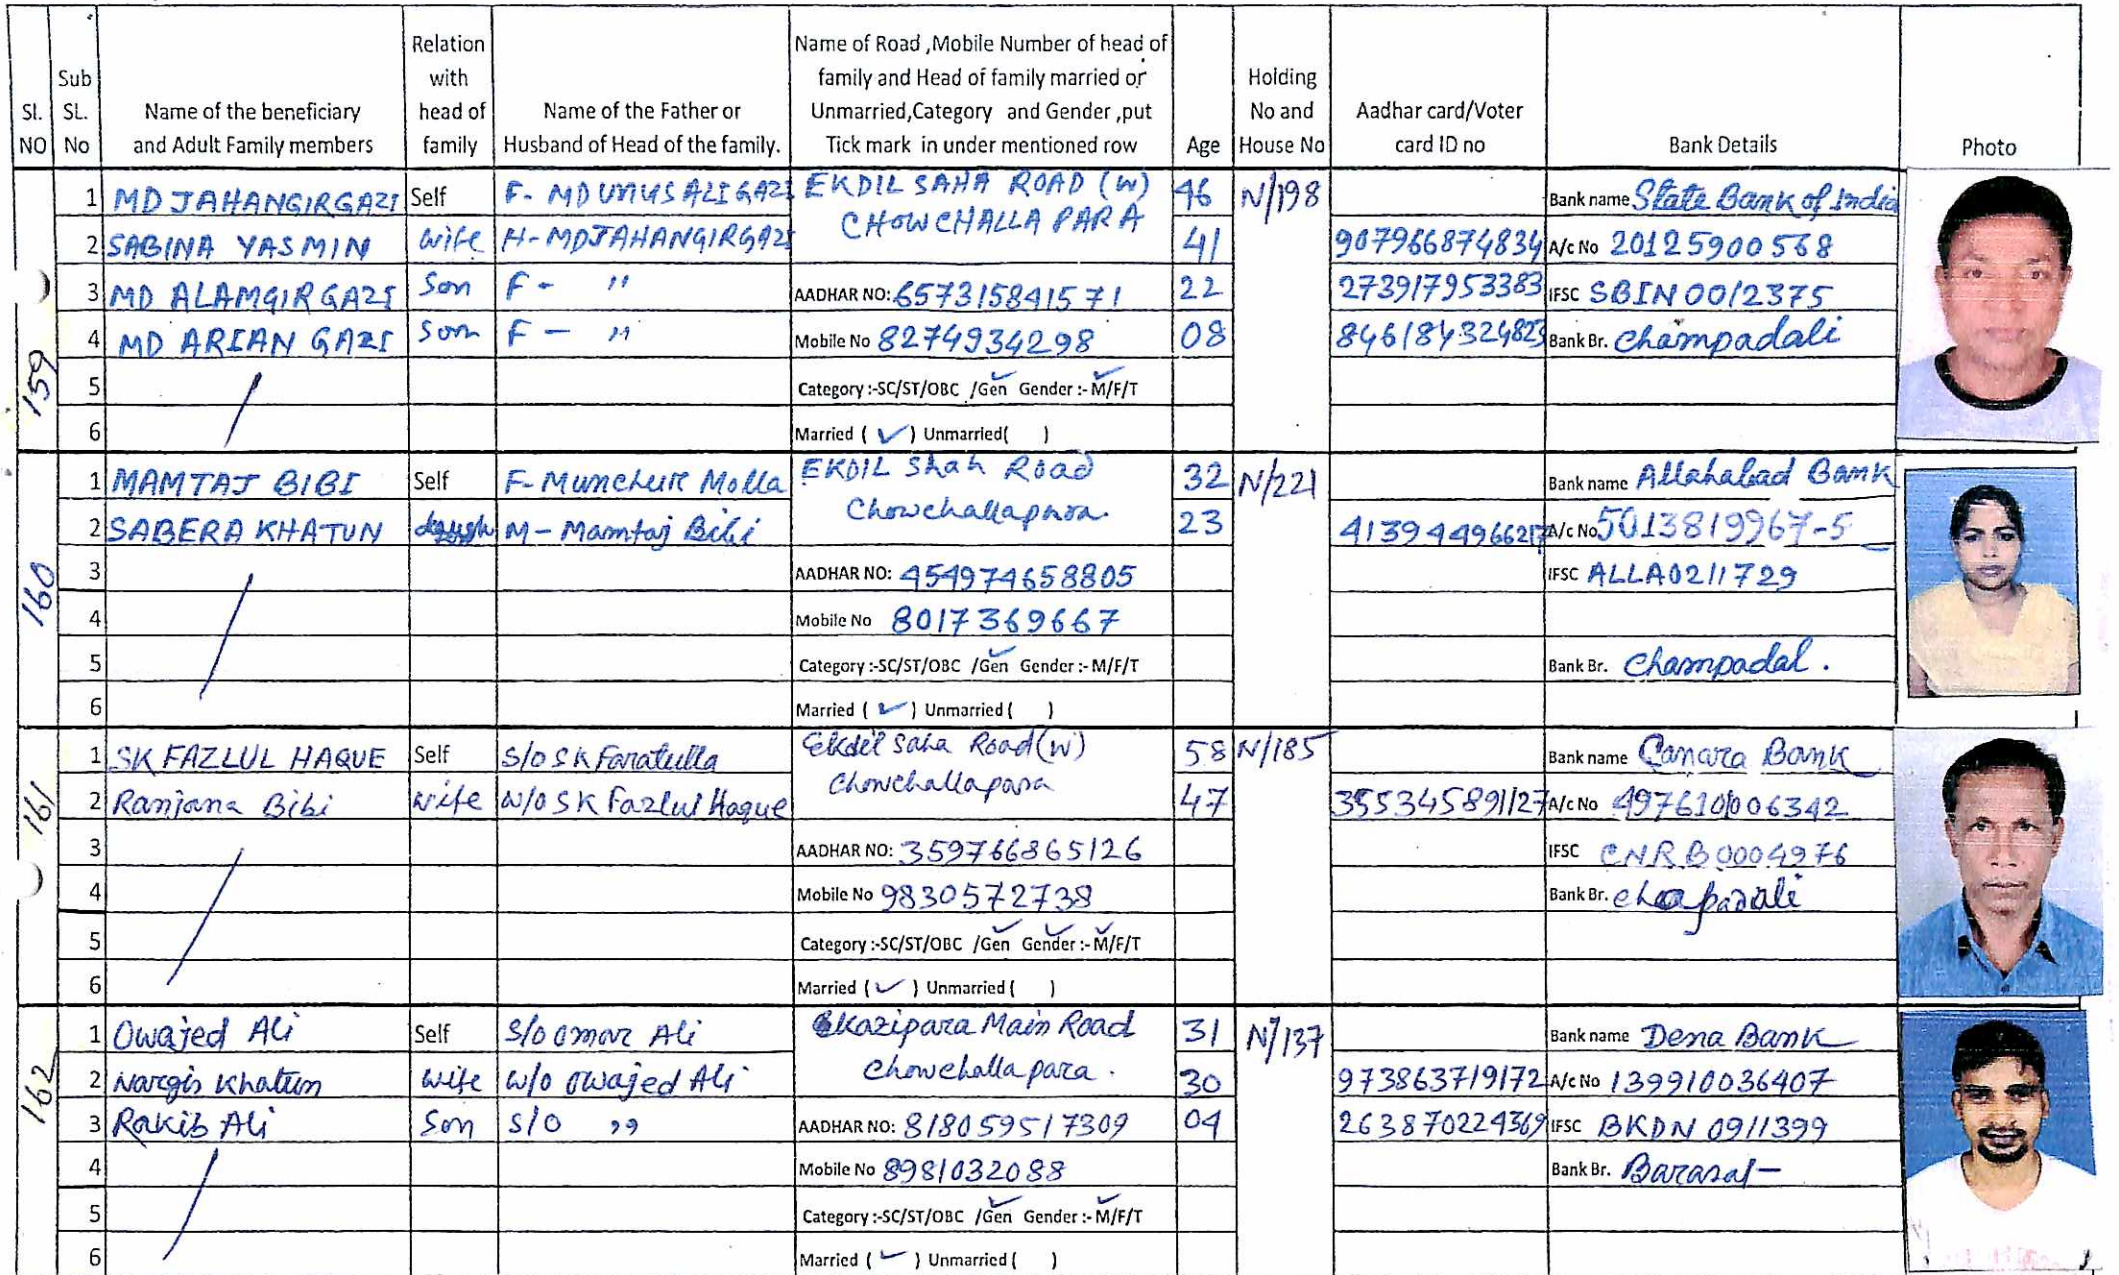 Sl. NO
Sub SL. No
Name of the beneficiary and Adult Family members
Relation with head of family
Name of the Father or Husband of Head of the family.
Name of Road ,Mobile Number of head of family and Head of family married or Unmarried,Category and Gender ,put Tick mark in under mentioned row
Age
Holding No and House No
Aadhar card/Voter card ID no
Bank Details
Photo
159
1 MD JAHANGIR GAZI Self F- MD UNUS ALI GAZI EKDIL SAHA ROAD (W) 46 N/198 Bank name State Bank of India
CHOWCHALLA PARA
2 SABINA YASMIN wife H- MD JAHANGIR GAZI 41 907966874834 A/c No 20125900568
3 MD ALAMGIR GAZI Son F - " AADHAR NO: 657315841571 22 273917953383 IFSC SBIN0012375
4 MD ARIAN GAZI Son F - " Mobile No 8274934298 08 846184324823 Bank Br. Champadali
5 Category :-SC/ST/OBC /Gen ✓ Gender :- M/F/T ✓
6 Married ( ✓ ) Unmarried( )
160
1 MAMTAJ BIBI Self F- Munchur Molla EKDIL Shah Road 32 N/221 Bank name Allahabad Bank
Chowchallapara.
2 SABERA KHATUN M - Mamtaj Bibi 23 A/c No 5013819967-5
3 AADHAR NO: 454974658805 IFSC ALLA0211729
4 Mobile No 8017369667
5 Category :-SC/ST/OBC /Gen ✓ Gender :- M/F/T Bank Br. Champadal.
6 Married ( ✓ ) Unmarried ( )
161
1 SK FAZLUL HAQUE Self S/O SK Faratulla Ekdil Saha Road (W) 58 N/185 Bank name Canara Bank
Chowchallapara
2 Ranjana Bibi wife W/O SK Fazlul Haque 47 355345891127 A/c No 4976101006342
3 AADHAR NO: 359766865126 IFSC CNRB0004976
4 Mobile No 9830572738 Bank Br.
5 Category :-SC/ST/OBC /Gen ✓ Gender :- ✓ M/F/T ✓
6 Married ( ✓ ) Unmarried ( )
162
1 Owajed Ali Self S/O Omar Ali Kazipara Main Road 31 N/137 Bank name Dena Bank
Chowchalla para.
2 Nargis Khatun wife W/O Owajed Ali 30 973863719172 A/c No 139910036407
3 Rakib Ali Son S/O " AADHAR NO: 818059517309 04 263870224369 IFSC BKDN 0911399
4 Mobile No 8981032088 Bank Br. Barasat
5 Category :-SC/ST/OBC /Gen ✓ Gender :- M/F/T ✓
6 Married ( ✓ ) Unmarried ( )